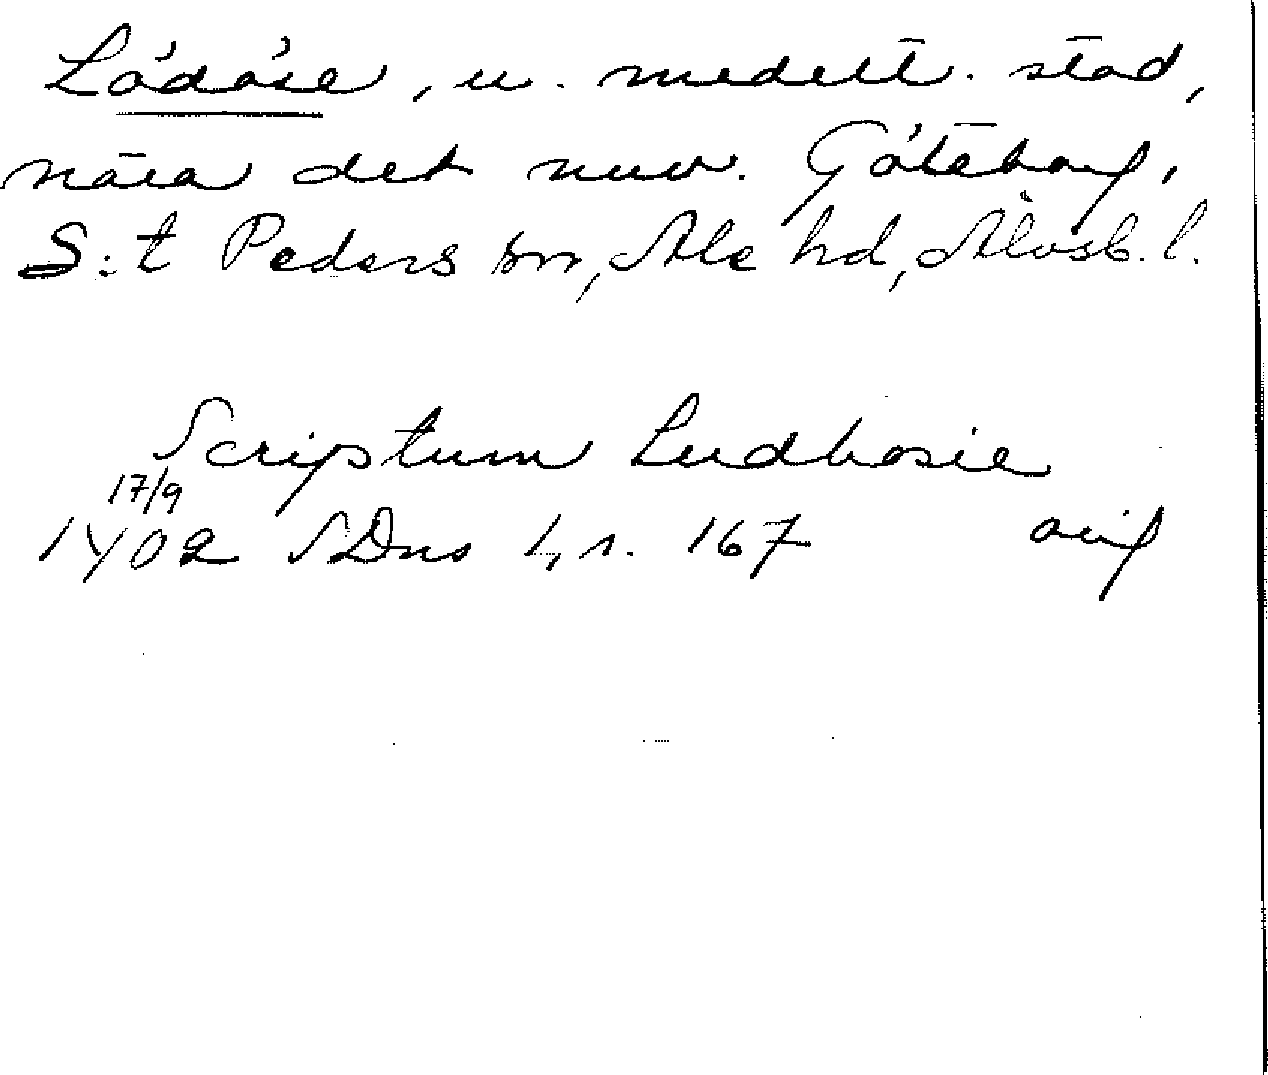 Lödöse, u. medelt. stad,
nära det nuv. Göteborg,
S:t Peders sn, Ale hd, Älvsb. l.
Scriptum Ludhosie
17/9
1402 SDns 1, s. 167 orig